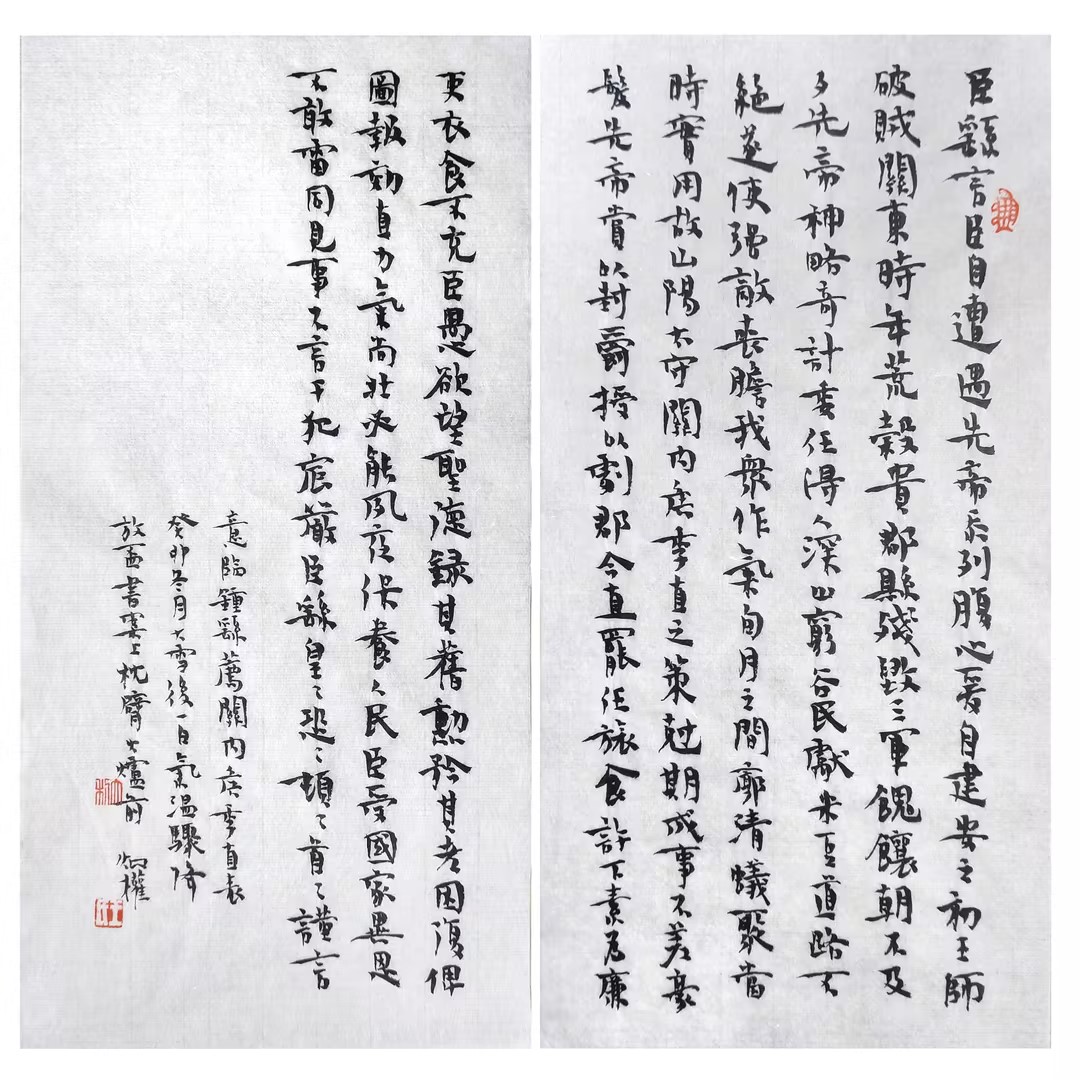 臣繇言臣自遭遇先帝忝列腹心爰自建安之初王師
破賊關東時年荒穀貴郡縣殘毀三軍餽饟朝不及
夕先帝神略奇計委任得人深山窮谷民獻米豆道路不
絕遂使強敵喪膽我眾作氣旬月之間廓清蟻聚當
時實用故山陽太守關內侯季直之策尅期成事不差豪
髮先帝賞以封爵授以劇郡今直罷任旅食許下素為廉
吏衣食不充臣愚欲望聖德錄其舊勳矜其老困復俾
圖報効直力氣尚壯必能夙夜保養人民臣受國家異恩
不敢雷同見事不言干犯宸嚴臣繇皇〻恐〻頓〻首〻謹言
意臨鍾繇薦關內侯季直表
癸卯冬月大雪後一日氣溫驟降
書上枕臂火爐前 炳權